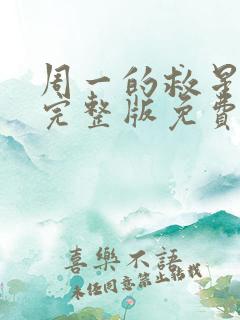 周一的救星
完整版免费
喜樂不語
未经同意禁止转载